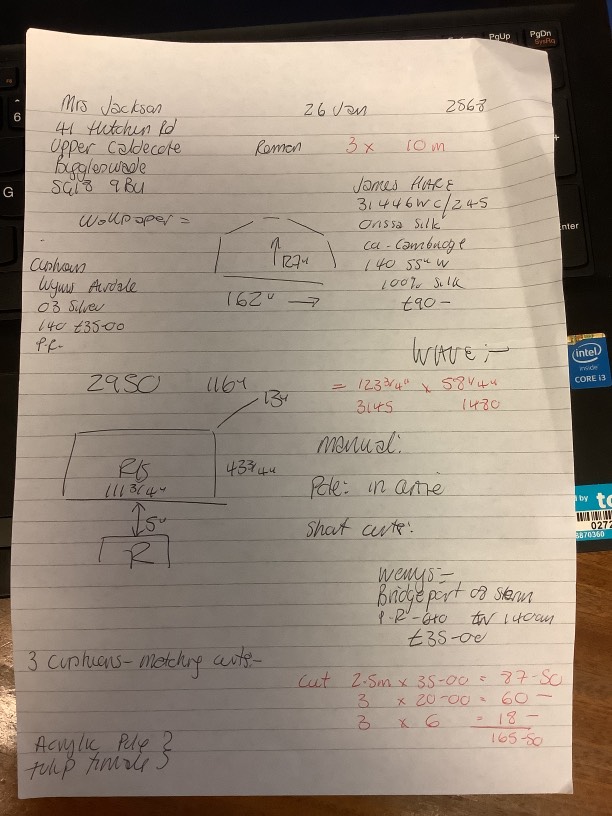 PgUp
PgDn
SysRq
6
G
Enter
Mrs Jackson 26 Jan 2868
41 Hutchin Rd
Upper Caldecote Roman 3 x 10m
Biggleswade
SG18 9BU
James HARE
31446WC/245
Orissa Silk
ca-Cambridge
140 55" W
100% Silk
£90-
Wallpaper =
127"
162" →
Cushions
Wyms Airdale
03 Silver
140 £35-00
P.R.
WAVE:-
2950 116"
= 123 3/4" x 58 1/4"
3145 1480
13"
RB
111 3/4"
43 3/4"
5"
R
Manual:
Pole: in
Short
Wemys:-
Bridgeport 08 Storm
P-R- 140cm
£35-00
3 Cushions- matching
Cut 2.5m x 35-00 = 87-50
3 x 20-00 = 60-
3 x 6 = 18-
165-50
Acrylic Pole }
tulip finials }
intel
inside
CORE i3
0272
8870360